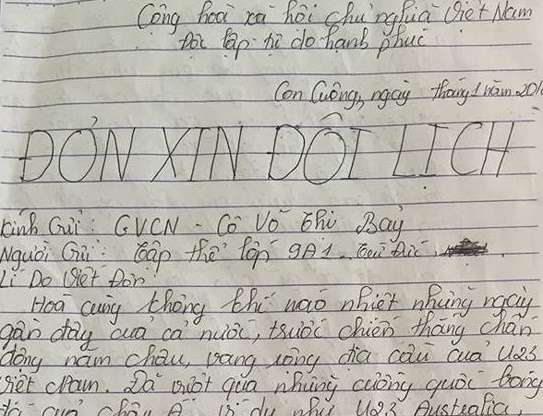 Cộng hoà xã hội chủ nghĩa Việt Nam
Độc lập tự do hạnh phúc
Con Cuông, ngày tháng 1 năm 201
ĐƠN XIN ĐỔI LỊCH
Kính Gửi: GVCN - Cô Võ Thị Bảy
Người Gửi: Tập thể lớp 9A1
Lí Do Viết Đơn
Hoà cùng không khí náo nhiệt những ngày
gần đây của cả nước, trước chiến thắng chấn
động năm châu, vang vọng địa cầu của U23
Việt Nam. Đã vượt qua những cường quốc bóng
đá của châu Á ví dụ như U23 Australia,